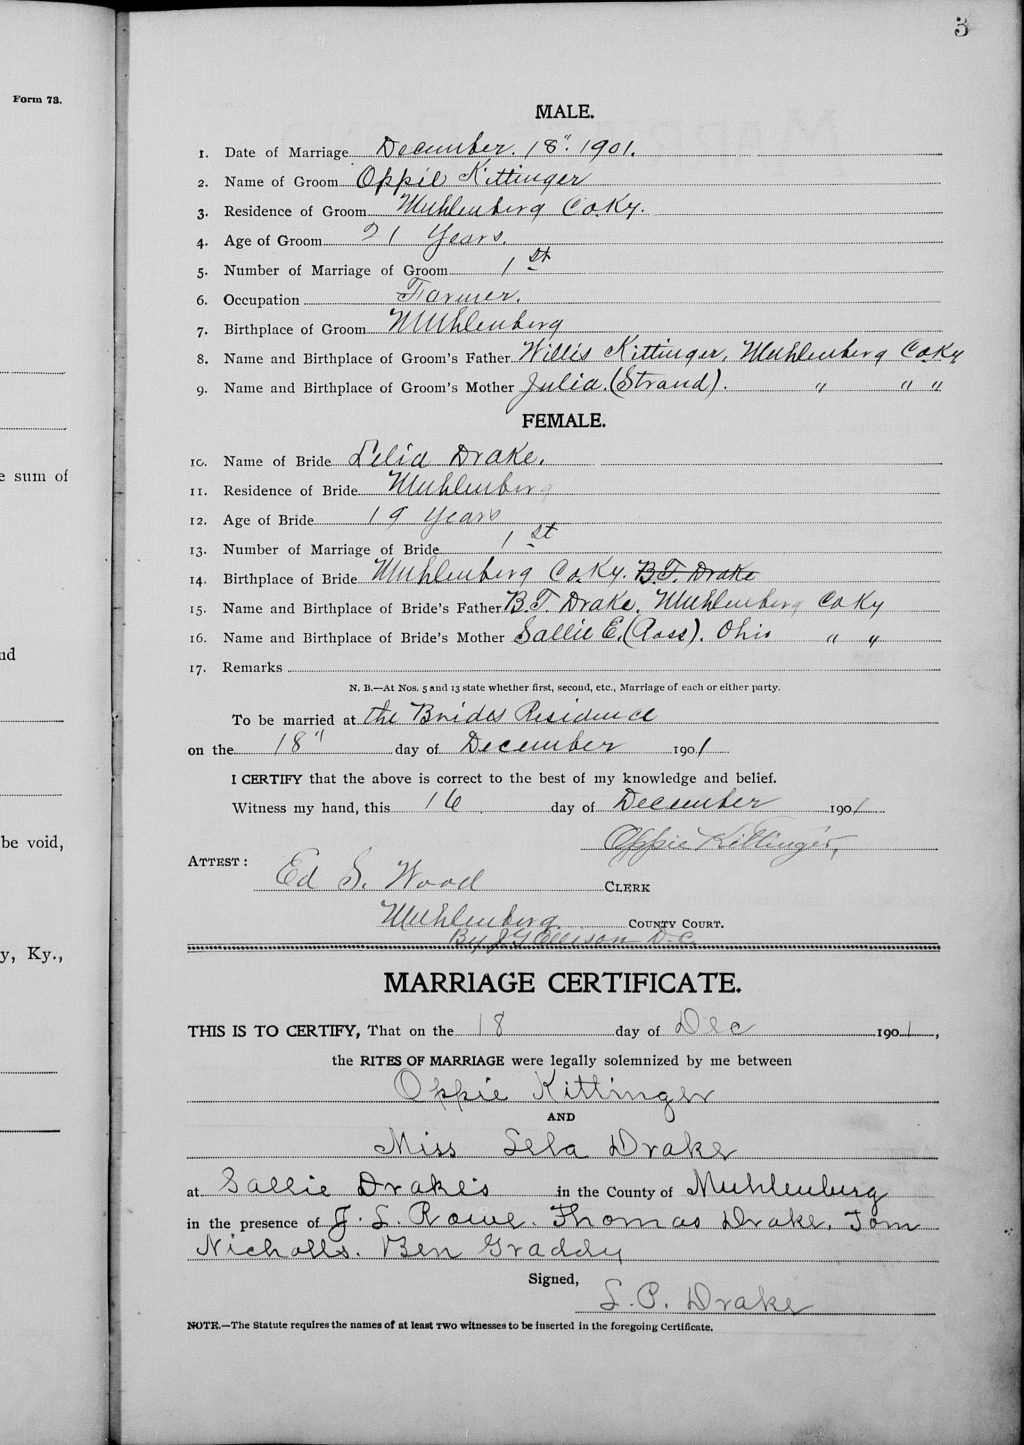 5
Form 73.
MALE.
1. Date of Marriage December. 18". 1901.
2. Name of Groom Oppie Kittinger
3. Residence of Groom Muhlenberg Co. Ky.
4. Age of Groom 21 Years.
5. Number of Marriage of Groom 1st
6. Occupation Farmer.
7. Birthplace of Groom Muhlenberg
8. Name and Birthplace of Groom's Father Willis Kittinger, Muhlenberg Co Ky
9. Name and Birthplace of Groom's Mother Julia. (Strand). " " "
FEMALE.
10. Name of Bride Lelia Drake.
11. Residence of Bride Muhlenberg
12. Age of Bride 19 Years
13. Number of Marriage of Bride 1st
14. Birthplace of Bride Muhlenberg Co. Ky. B.T. Drake
15. Name and Birthplace of Bride's Father B.T. Drake, Muhlenberg Co Ky
16. Name and Birthplace of Bride's Mother Sallie E. (Ross). Ohio " "
17. Remarks
N. B.—At Nos. 5 and 13 state whether first, second, etc., Marriage of each or either party.
To be married at the Brides Residence
on the 18" day of December 1901
I CERTIFY that the above is correct to the best of my knowledge and belief.
Witness my hand, this 16 day of December 1901
Oppie Kittinger,
ATTEST:
Ed S. Wood CLERK
Muhlenberg COUNTY COURT.
By J G Ellison D.C.
MARRIAGE CERTIFICATE.
THIS IS TO CERTIFY, That on the 18 day of Dec 1901,
the RITES OF MARRIAGE were legally solemnized by me between
Oppie Kittinger
AND
Miss Lela Drake
at Sallie Drake's in the County of Muhlenburg
in the presence of J. L. Rowe. Thomas Drake. Tom
Nicholls. Ben Graddy
Signed,
L. P. Drake
NOTE.—The Statute requires the names of at least TWO witnesses to be inserted in the foregoing Certificate.
e sum of
nd
be void,
y, Ky.,